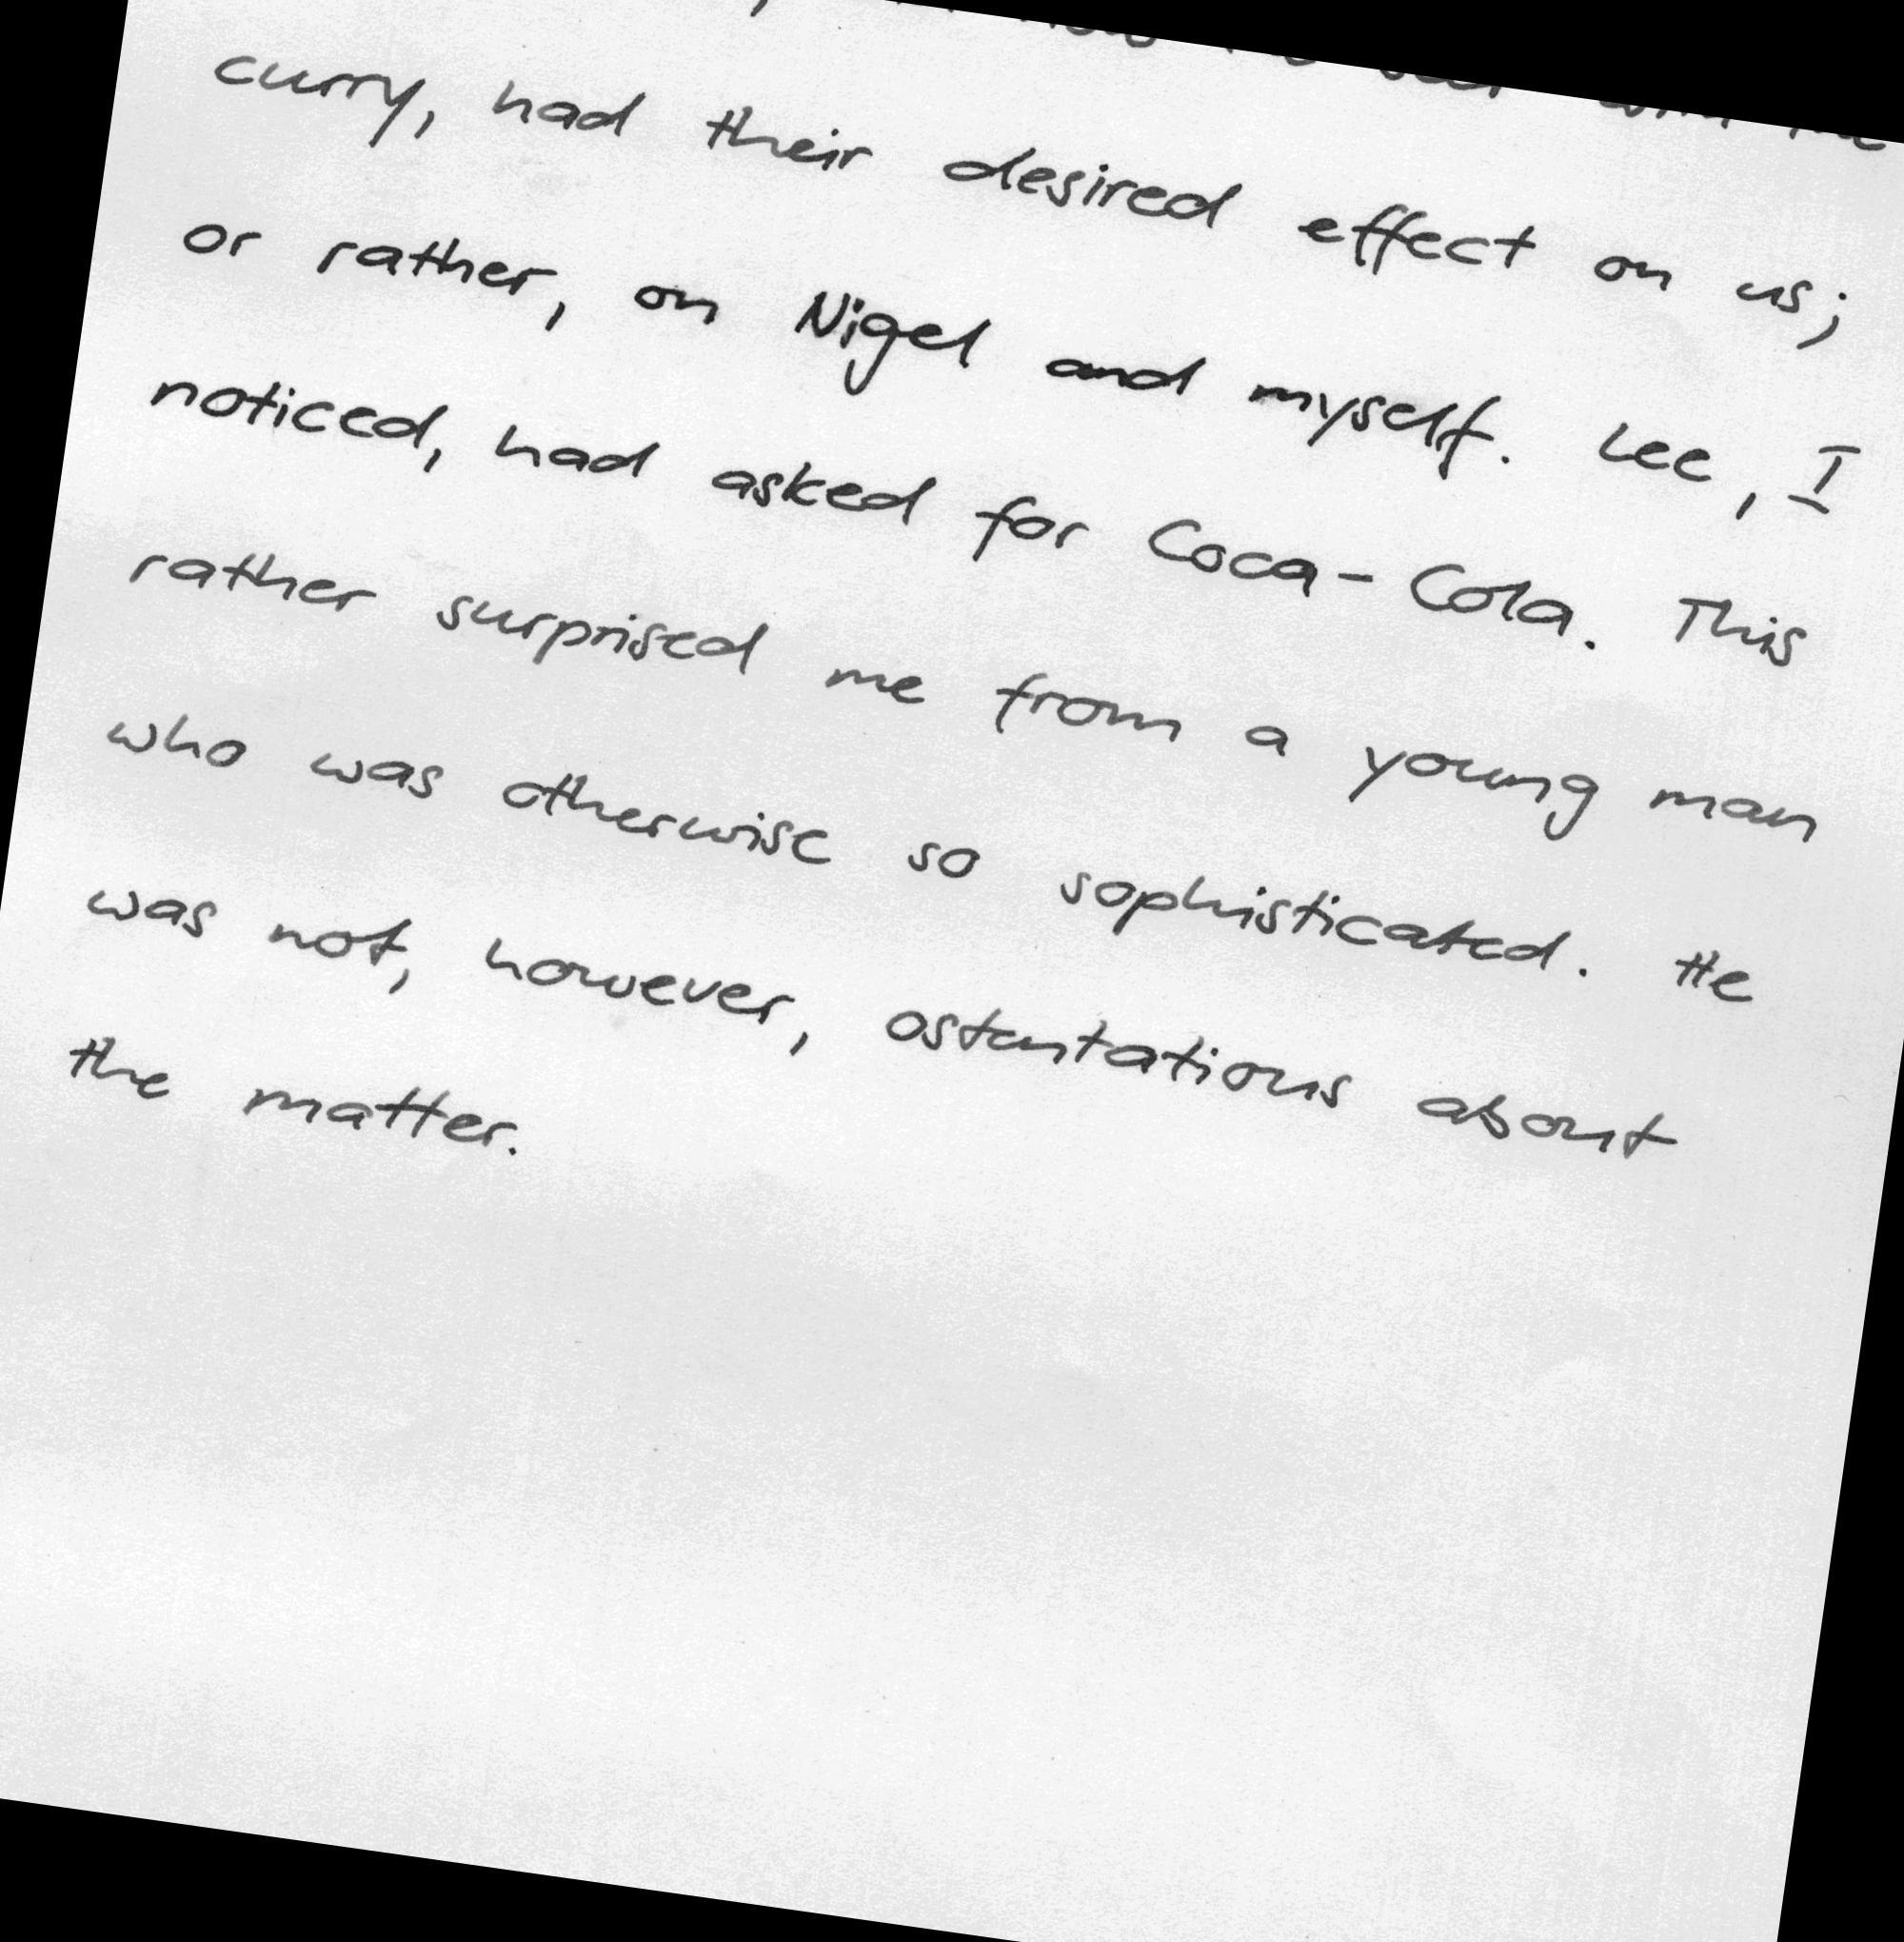 curry, had their desired effect on us;
or rather, on Nigel and myself. Lee, I
noticed, had asked for Coca-Cola. This
rather surprised me from a young man
who was otherwise so sophisticated. He
was not, however, ostentatious about
the matter.